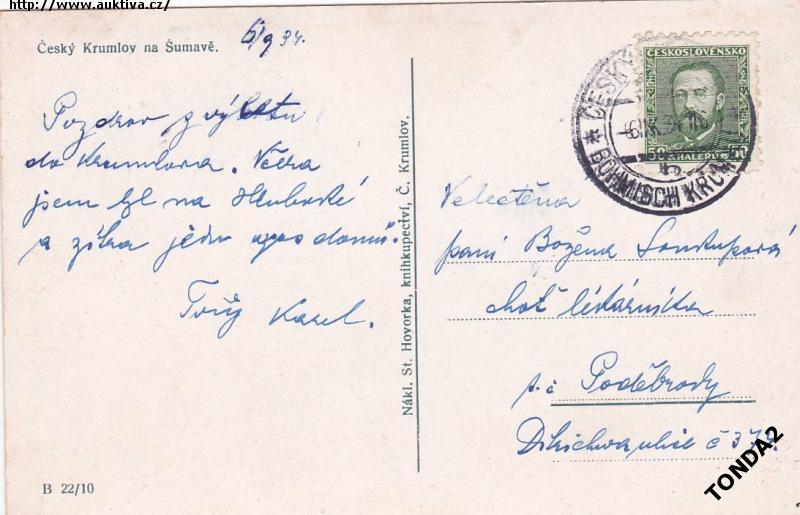 http://www.auktiva.cz/
Český Krumlov na Šumavě.
6/9 34.
Pozdrav z výletu
do Krumlova. Včera
jsem byl na Hluboké
a zítra jedu zpět domů.
Tvůj Karel.
Nákl. St. Hovorka, knihkupectví, Č. Krumlov.
ČESKOSLOVENSKO
50 HALÉŘŮ 50
ČESKÝ
BÖHMISCH KRUM
Velectěná
paní Božena
choť lékárníka
Poděbrady
ulice č 375.
B 22/10
TONDA2